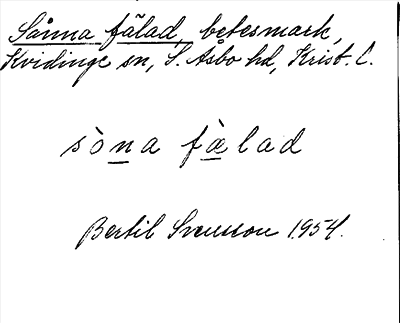 Sånna fälad, betesmark,
Kvidinge sn, S. Åsbo hd, Krist. l.
sòna fælad
Bertil Svensson 1954.